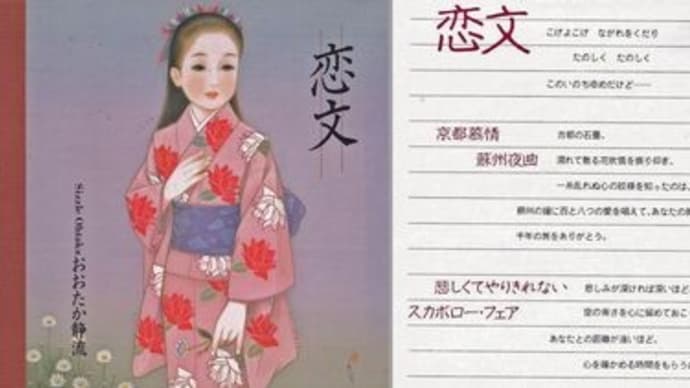 恋文
Sizzle Ohtaka おおたか静流
恋文
こげよこげ ながれをくだり
たのしく たのしく
このいのちゆめだけど──
京都慕情 古都の石畳。
蘇州夜曲 濡れて散る花吹雪を振り仰ぎ、
一糸乱れぬ心の紋様を知ったのは、
蘇州の鐘に百と八つの愛を唱えて、あなたの
千年の旅をありがとう。
悲しくてやりきれない 悲しみが深ければ深いほど
スカボロー・フェア 空の青さを心に留めておこ
あなたとの距離が遠いほど、
心を確かめる時間をもらう